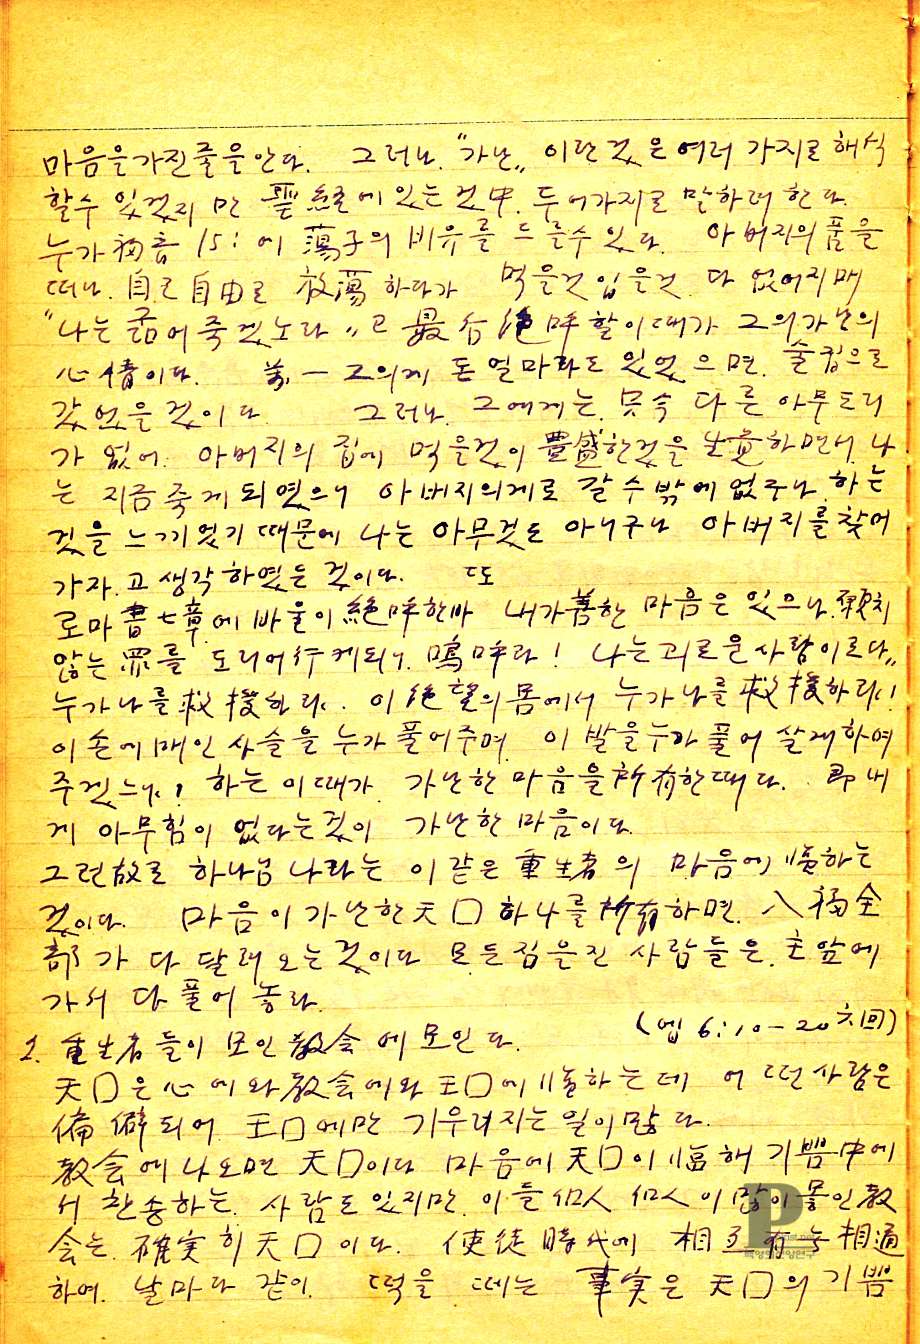 마음을 가진줄을 안다. 그러나. "가난„ 이란것은 여러 가지로 해석
할수 있겠지만 聖経에 있는 것中. 두어가지로 말하려 한다.
누가福音 15: 에 蕩子의 비유를 드를수 있다. 아버지의 품을
떠나. 自己自由로 放蕩하다가 먹을것 입을것. 다 없어지매
"나는 굶어 죽겠노라„고 最后絶呼할 이때가 그의 가난의
心情이다. 萬一 그의게 돈 얼마라도 있었으면. 술집으로
갔었을것이다. 그러나. 그에게는. 못속 다른 아무 도리
가 없어. 아버지의 집에 먹을것이 豊盛한것을 生覚하면서. 나
는 지금 죽게 되였으니 아버지의게로 갈수 밖에 없구나. 하는
것을 느끼였기 때문에 나는 아무것도 아니구나 아버지를 찾어
가자. 고 생각하였은 것이다. 또
로마書 七章에 바울이 絶呼한바 내가 善한 마음은 있으나.
않는 罪를 도리어 行케되니. 嗚呼라! 나는 괴로운 사람이로다„
누가 나를 救援하랴. 이 絶望의 몸에서 누가 나를 救援하랴!
이 손에 매인 사슬을 누가 풀어주며. 이 발을 누가 풀어 살게하여
주겠느냐! 하는 이때가. 가난한 마음을 所有한때다. 即 내
게 아무힘이 없다는것이 가난한 마음이다.
그런故로 하나님 나라는 이같은 重生者의 마음에 臨하는
것이다. 마음이 가난한 天囗 하나를 所有하면. 八福全
部가 다 달려 오는것이다 모든짐을진 사람들은. 主앞에
가서 다 풀어 놓라.
2. 重生者들이 모인 教会에 모인다. (엡 6:10-20 六回)
天囗은 心에와 教会에와 王囗에 臨하는데 어떤 사람은
偏僻되어. 王囗에만 기우러지는 일이 많다.
教会에 나오면 天囗이다 마음에 天囗이 臨해 기쁨中에
서 찬송하는. 사람도 있지만. 이들 個人 個人이 많이 몽인 教
会는. 確実히 天囗이다. 使徒時代에 相互有無相通
하여. 날마다 같이. 떡을 떼는 事実은 天囗의 기쁨